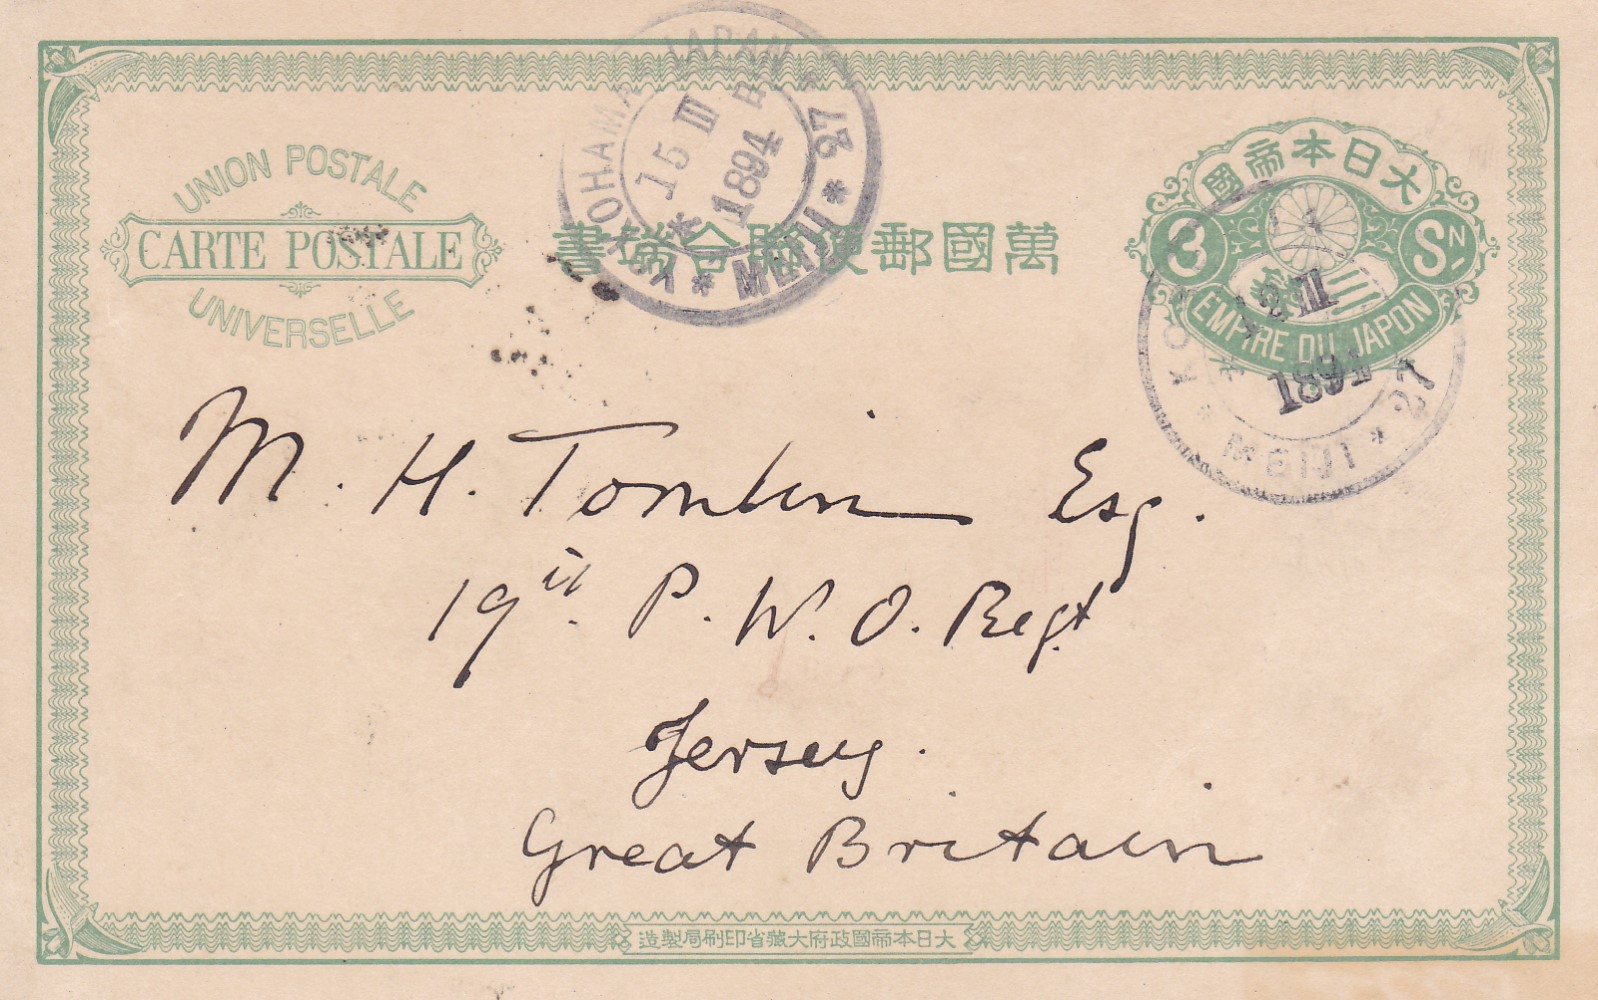 UNION POSTALE
CARTE POSTALE
UNIVERSELLE
YOKOHAMA JAPAN
15 III
1894
* MEIJI * 27
書端合聯便郵國萬
國帝本日大
3 SN
三
EMPIRE DU JAPON
KO
1894
* MEIJI * 27
M. H. Tomlin Esq.
19th P. W. O. Regt
Jersey.
Great Britain
造製局刷印省藏大府政國帝本日大